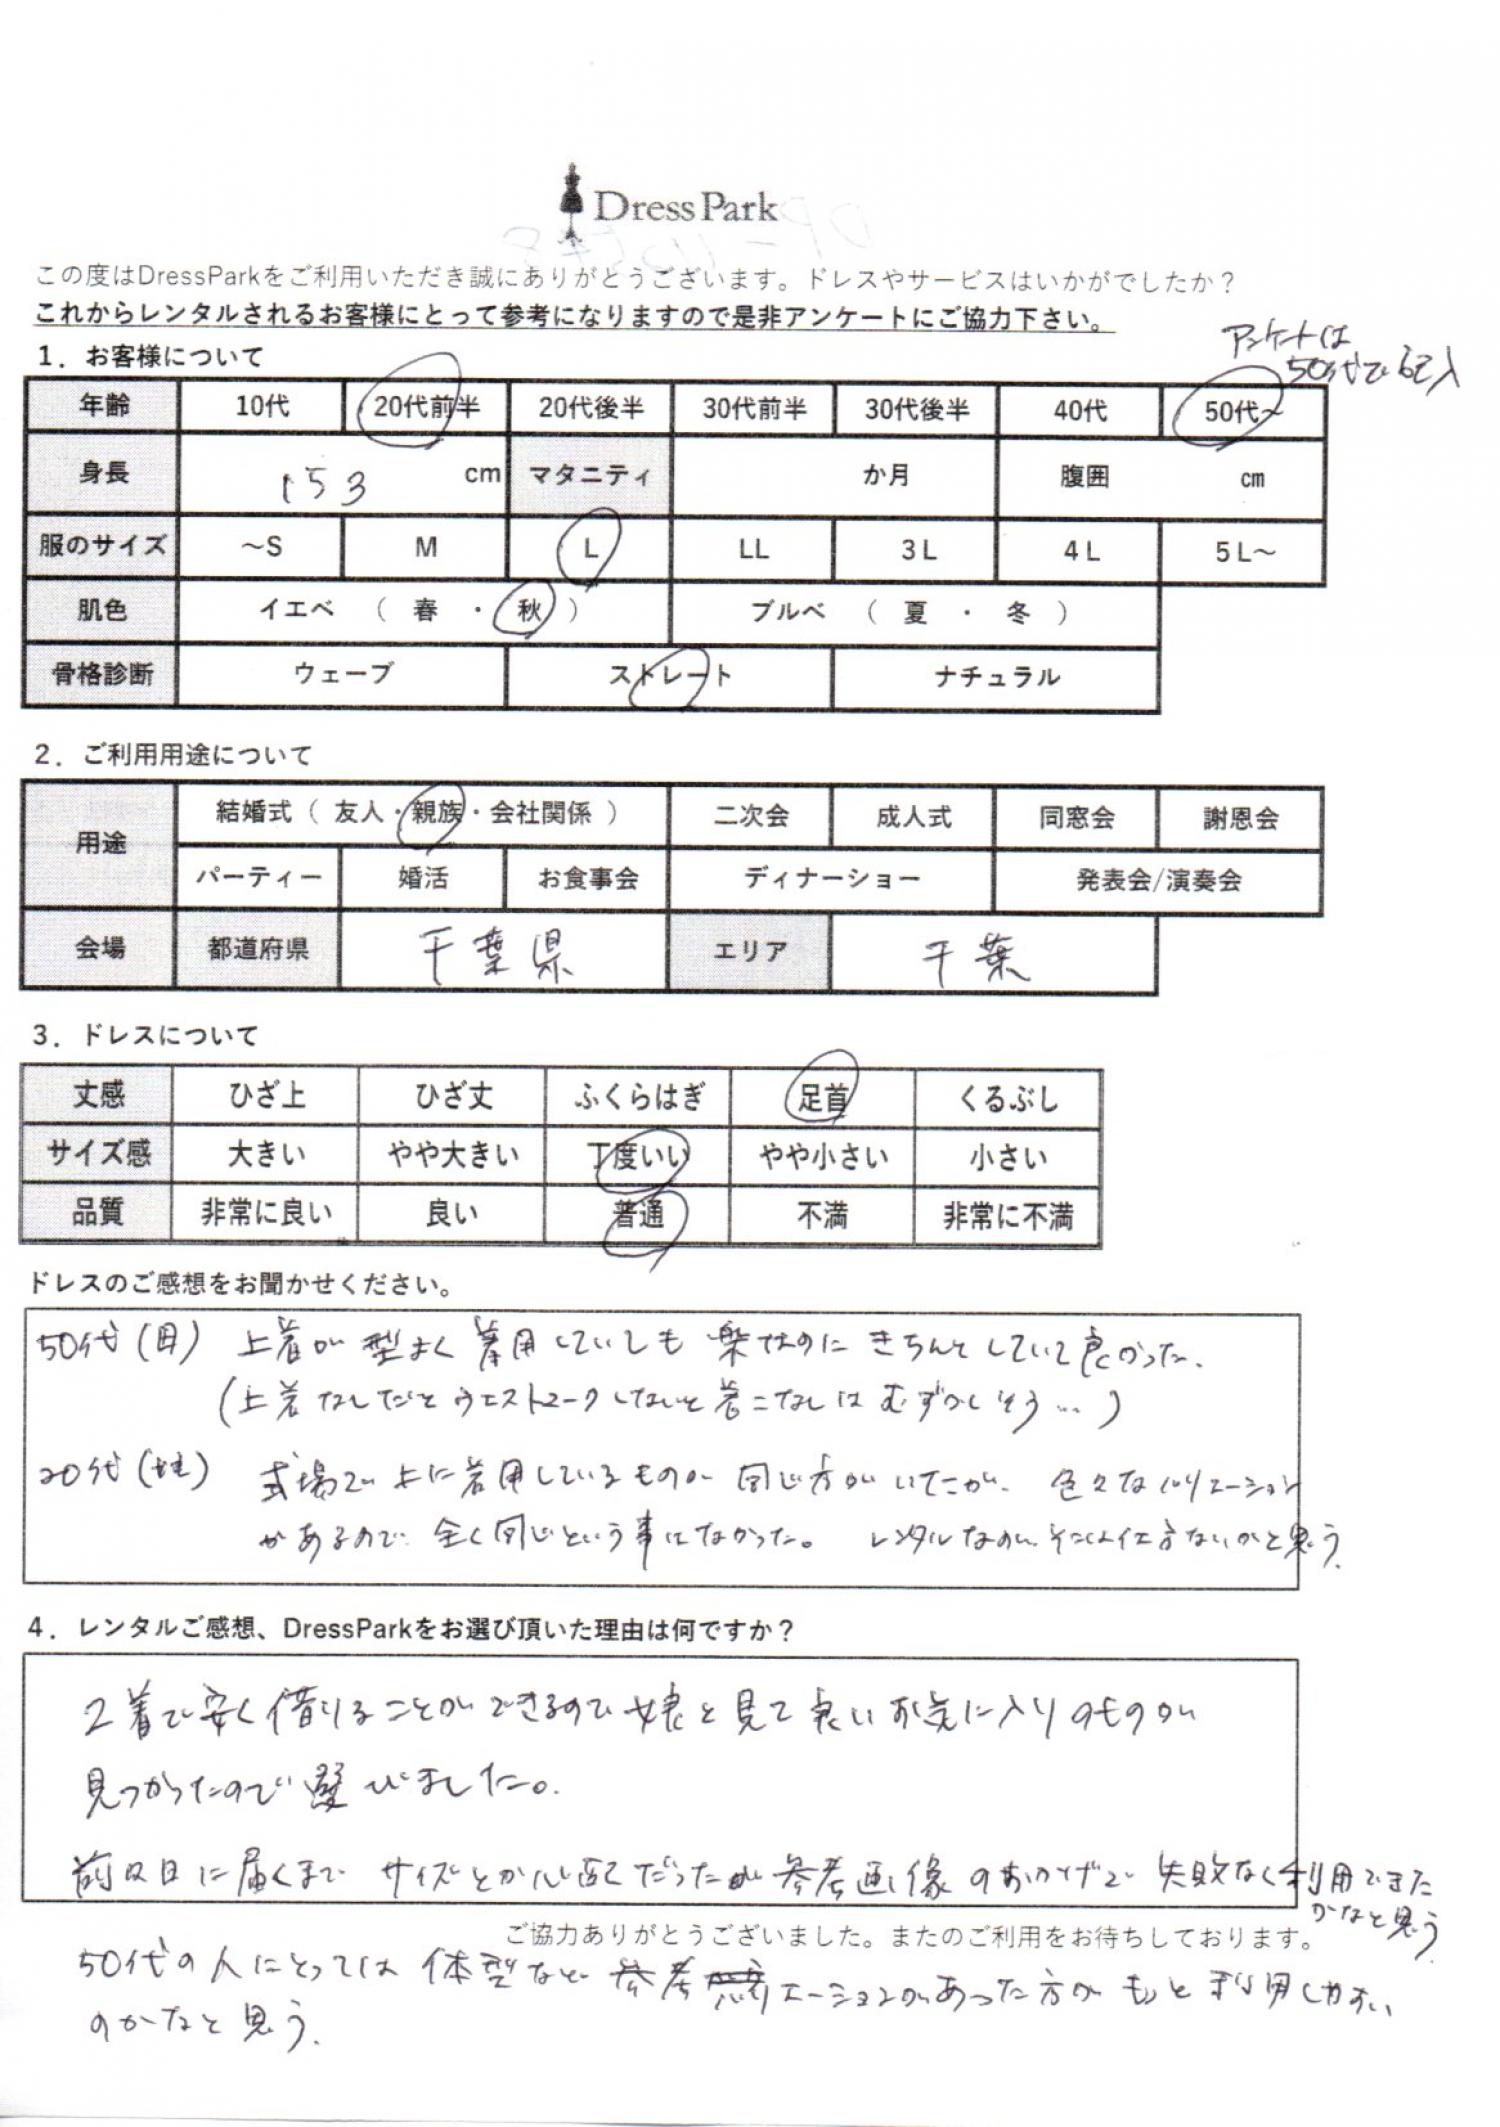 Dress Park
この度はDressParkをご利用いただき誠にありがとうございます。ドレスやサービスはいかがでしたか？
これからレンタルされるお客様にとって参考になりますので是非アンケートにご協力下さい。
アンケートは
50代で記入
1．お客様について
年齢 10代 20代前半 20代後半 30代前半 30代後半 40代 50代～
身長 153 cm マタニティ か月 腹囲 cm
服のサイズ ～S M L LL 3L 4L 5L～
肌色 イエベ （ 春 ・ 秋 ） ブルベ （ 夏 ・ 冬 ）
骨格診断 ウェーブ ストレート ナチュラル
2．ご利用用途について
用途 結婚式（ 友人・親族・会社関係 ） 二次会 成人式 同窓会 謝恩会
パーティー 婚活 お食事会 ディナーショー 発表会/演奏会
会場 都道府県 千葉県 エリア 千葉
3．ドレスについて
丈感 ひざ上 ひざ丈 ふくらはぎ 足首 くるぶし
サイズ感 大きい やや大きい 丁度いい やや小さい 小さい
品質 非常に良い 良い 普通 不満 非常に不満
ドレスのご感想をお聞かせください。
50代(母) 上着が型よく着用していても楽なのにきちんとしていて良かった。
(上着なしだとウエストマークしないと着こなしはむずかしそう…)
20代(娘) 式場で上に着用しているものが同じ方がいたが、色々なバリエーション
があるので全く同じという事はなかった。レンタルなのでそこは仕方ないかと思う。
4．レンタルご感想、DressParkをお選び頂いた理由は何ですか？
2着で安く借りることができるので娘と見て良いお気に入りのものが
見つかったので選びました。
前日に届くまでサイズとか心配だったが参考画像のおかげで失敗なく利用できた
かなと思う。
ご協力ありがとうございました。またのご利用をお待ちしております。
50代の人にとっては体型など参考 エーションがあった方がもっと利用しやすい
のかなと思う。